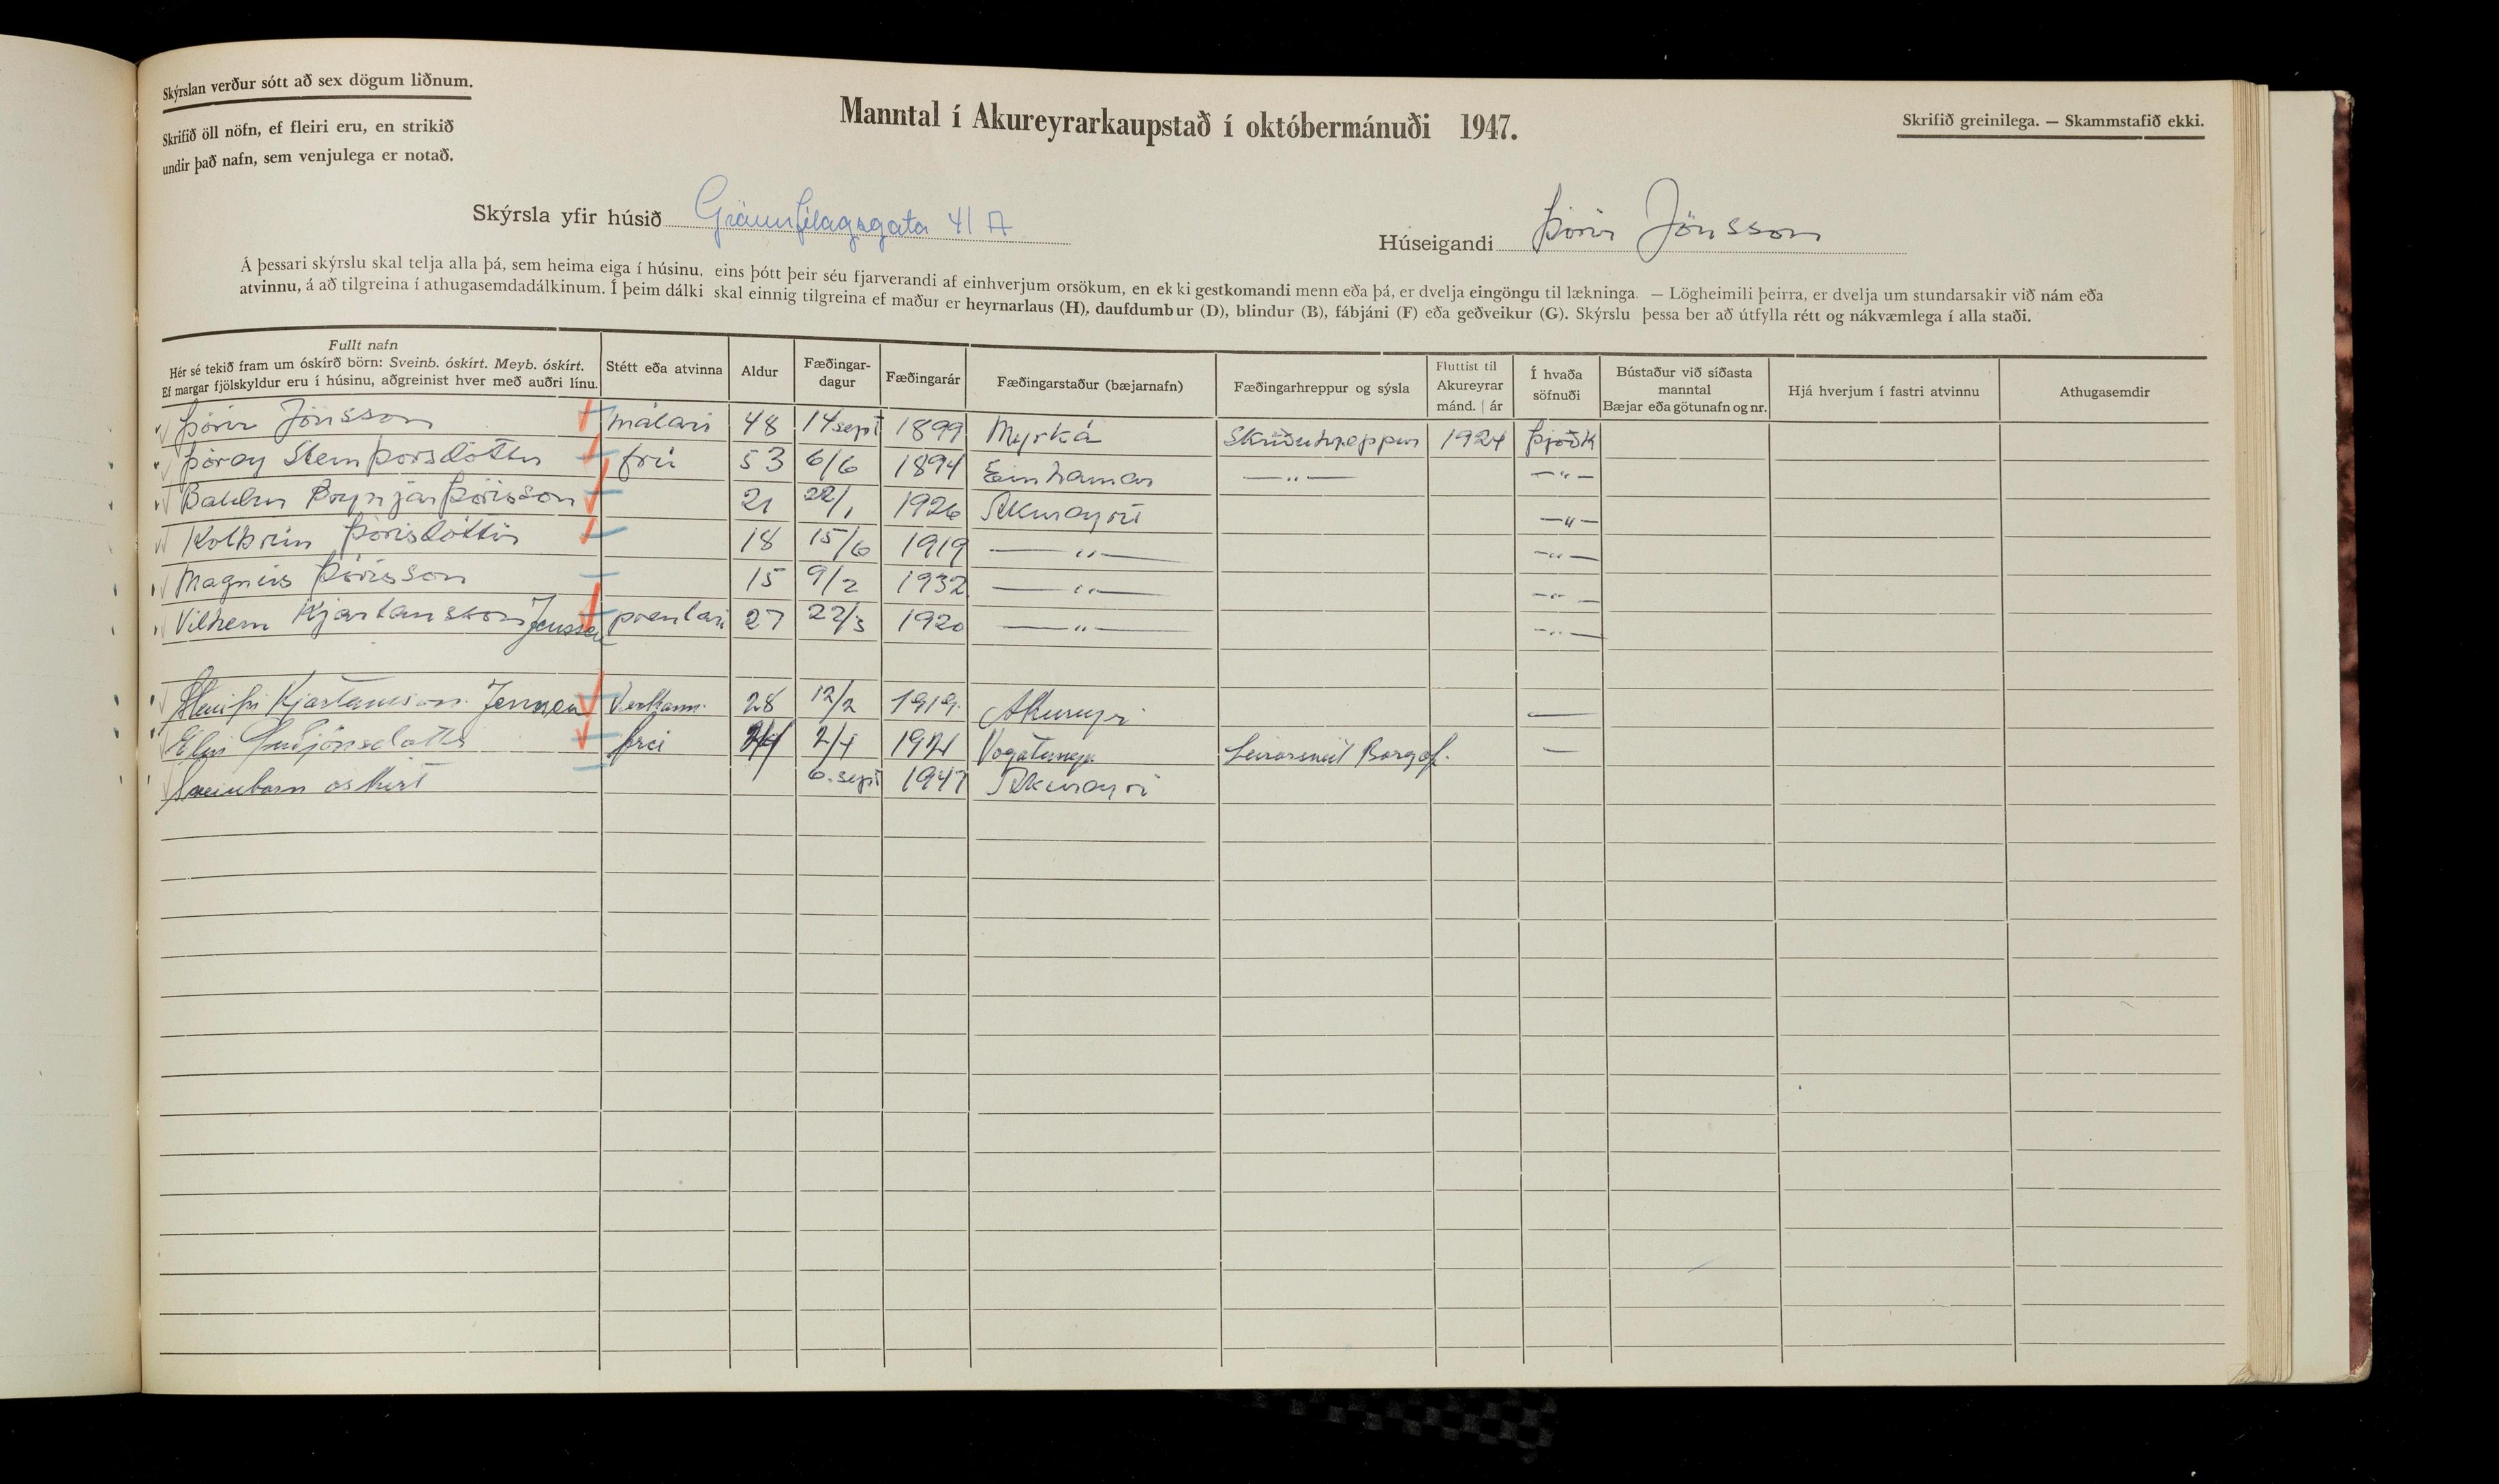 Skýrslan verður sótt að sex dögum liðnum.
Skrifið öll nöfn, ef fleiri eru, en strikið
undir það nafn, sem venjulega er notað.
Manntal í Akureyrarkaupstað í októbermánuði 1947.
Skrifið greinilega. — Skammstafið ekki.
Skýrsla yfir húsið Gránufélagsgata 41 A
Húseigandi Þórir Jónsson
Á þessari skýrslu skal telja alla þá, sem heima eiga í húsinu, eins þótt þeir séu fjarverandi af einhverjum orsökum, en ekki gestkomandi menn eða þá, er dvelja eingöngu til lækninga. — Lögheimili þeirra, er dvelja um stundarsakir við nám eða
atvinnu, á að tilgreina í athugasemdadálkinum. Í þeim dálki skal einnig tilgreina ef maður er heyrnarlaus (H), daufdumbur (D), blindur (B), fábjáni (F) eða geðveikur (G). Skýrslu þessa ber að útfylla rétt og nákvæmlega í alla staði.
Fullt nafn
Hér sé tekið fram um óskírð börn: Sveinb. óskírt. Meyb. óskírt.
Ef margar fjölskyldur eru í húsinu, aðgreinist hver með auðri línu.
Stétt eða atvinna
Aldur
Fæðingar-
dagur
Fæðingarár
Fæðingarstaður (bæjarnafn)
Fæðingarhreppur og sýsla
Fluttist til
Akureyrar
mánd. | ár
Í hvaða
söfnuði
Bústaður við síðasta
manntal
Bæjar eða götunafn og nr.
Hjá hverjum í fastri atvinnu
Athugasemdir
Þórir Jónsson málari 48 14 sept 1899 Myrká Skriðuhreppur 1924 Þjóðk
Þórey Steinþórsdóttir frú 53 6/6 1894 Einhamar —"— —"—
Baldur Brynjar Þórisson 21 22/1 1926 Akureyri —"—
Kolbrún Þórisdóttir 18 15/6 1919 —"— —"—
Magnús Þórisson 15 9/2 1932 —"— —"—
Vilhem Kjartansson Jenssen prentari 27 22/3 1920 —"— —"—
Kjartansson Jensen Verkam. 28 12/2 1919. Akureyri —
Elín Guðjónsdóttir frú 2/4 1921 Vogatunga Leirársveit Borgf. —
Sveinbarn óskírt 6. sept 1947 Akureyri